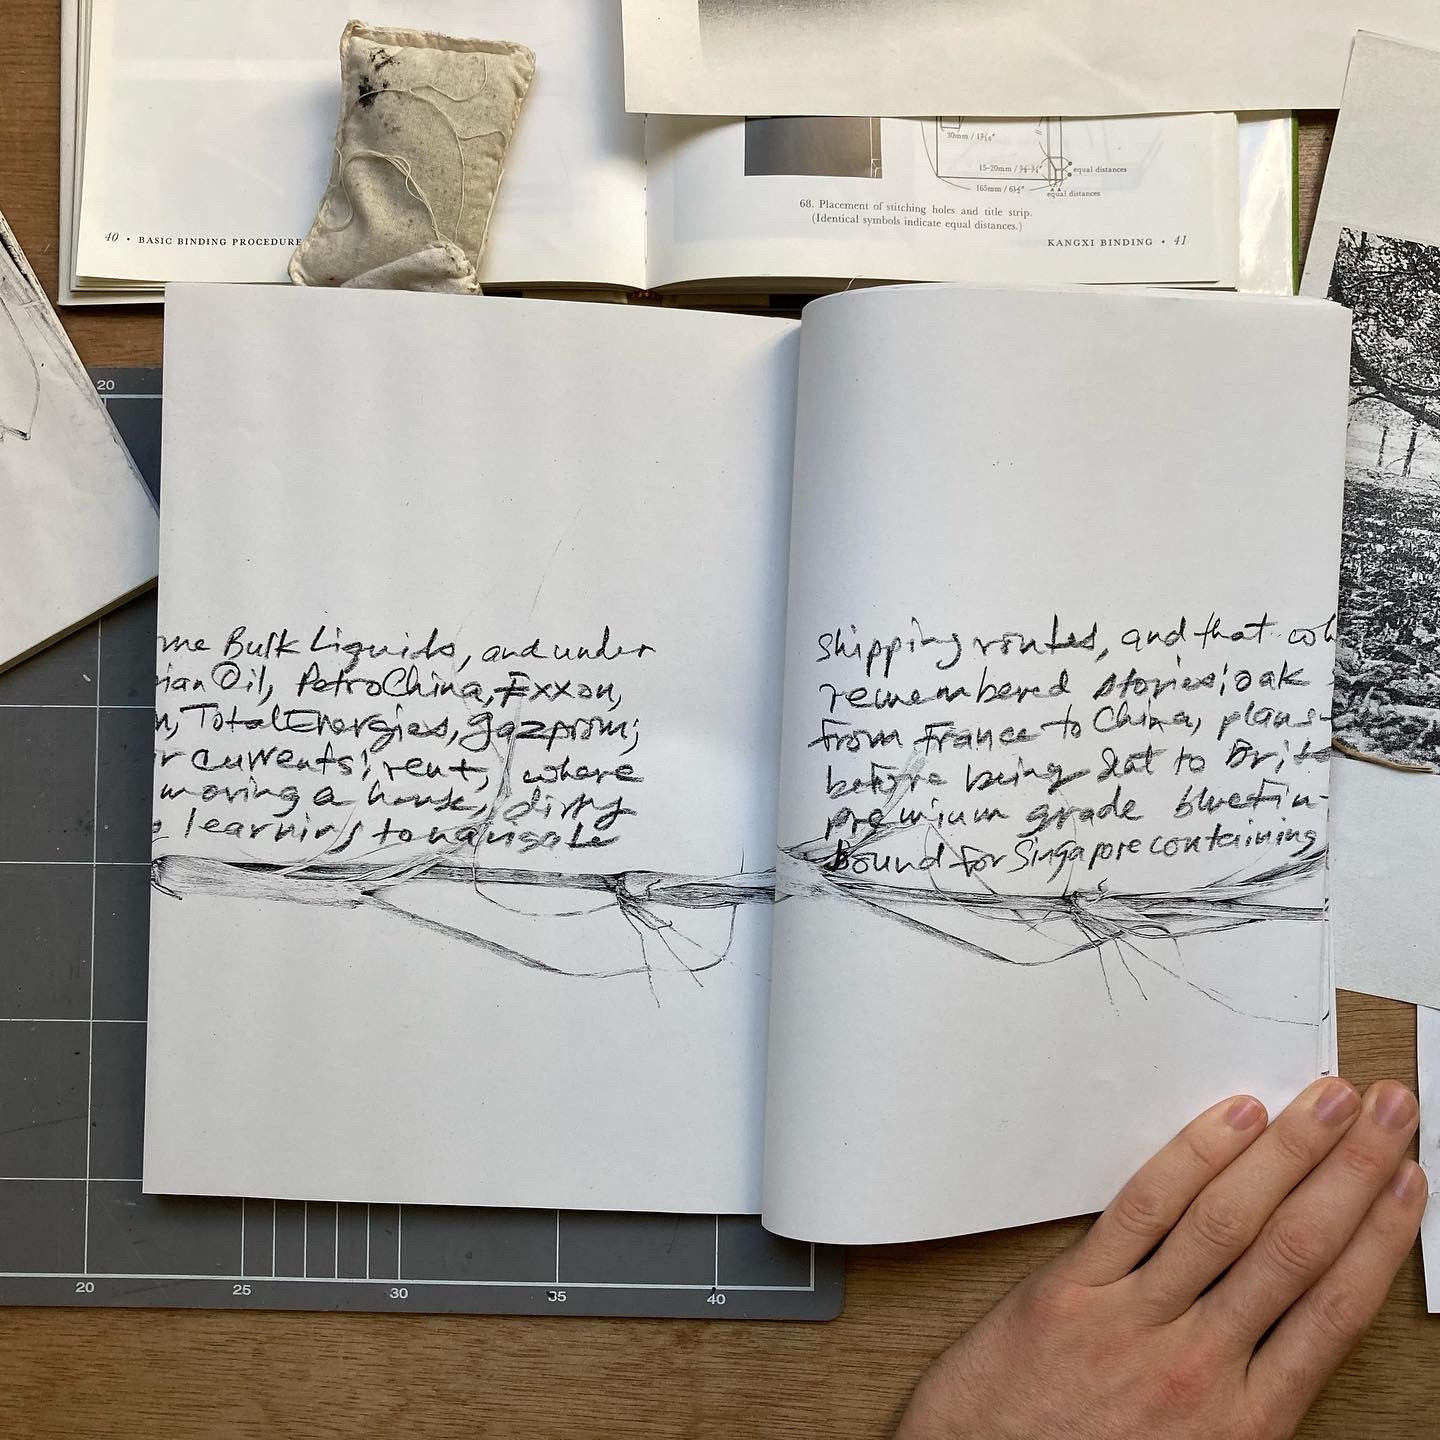 30mm / 1 3/16"
15-20mm / 5/8-3/4"
equal distances
165mm / 6 1/2"
equal distances
68. Placement of stitching holes and title strip.
(Identical symbols indicate equal distances.)
40 • BASIC BINDING PROCEDURE
KANGXI BINDING • 41
20
me Bulk Liquids, and under
ian Oil, PetroChina, Exxon,
n, TotalEnergies, Gazprom;
r currents; rent, where
moving a house, dirty
learning to
shipping routes, and that
remembered stories; oak
from France to China,
before being sat to
premium grade bluefin
Bound for Singapore containing
20 25 30 35 40